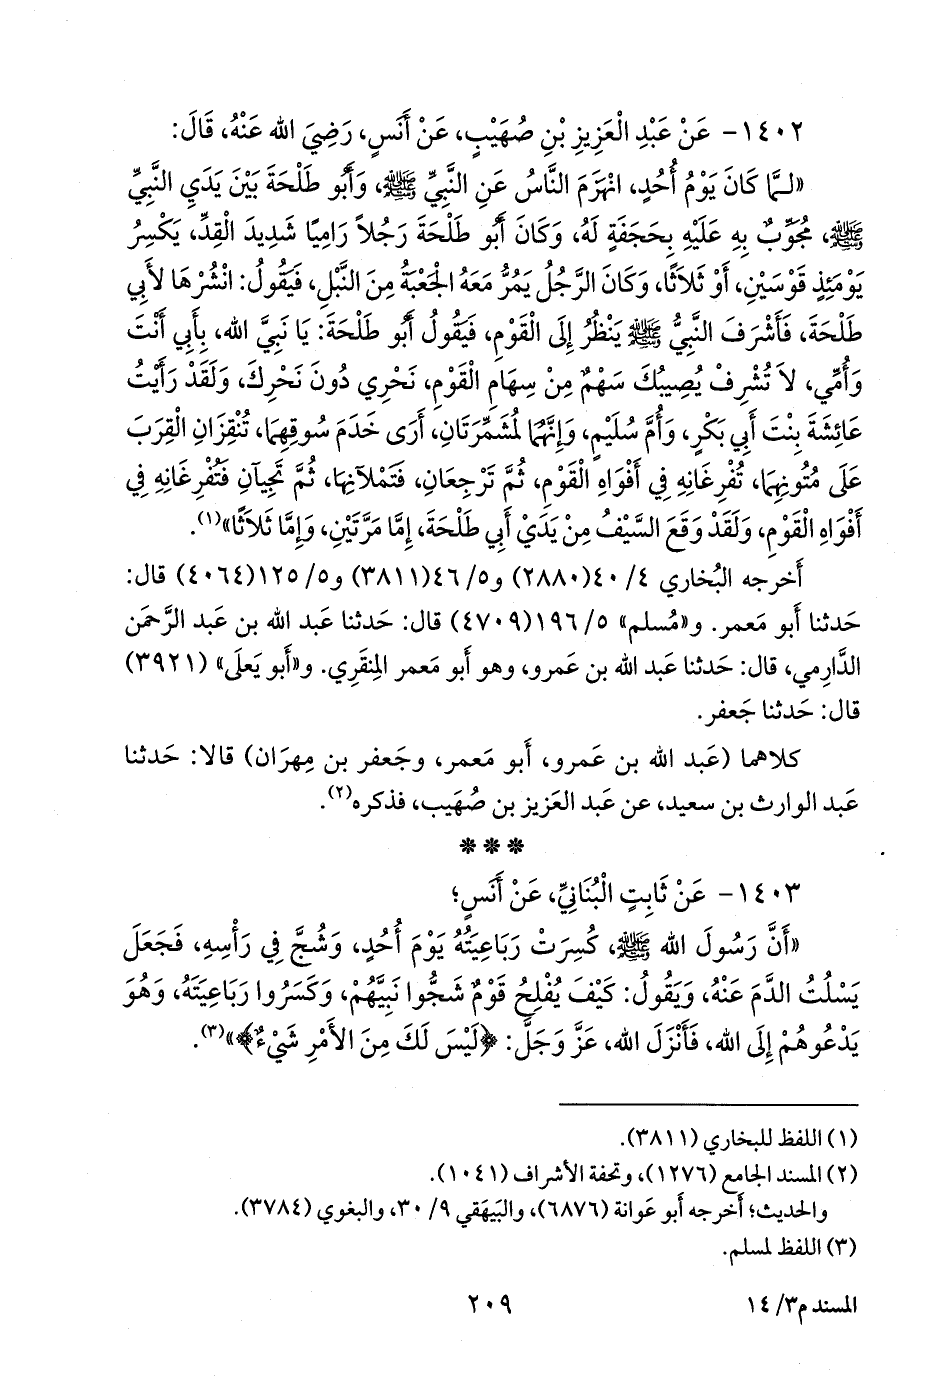 ١٤٠٢- عَنْ عَبْدِ الْعَزِيزِ بْنِ صُهَيْبٍ، عَنْ أَنَسٍ، رَضِيَ الله عَنْهُ، قَالَ:
«لَـمَّا كَانَ يَوْمُ أُحُدٍ، انْهَزَمَ النَّاسُ عَنِ النَّبِيِّ ﷺ، وَأَبُو طَلْحَةَ بَيْنَ يَدَيِ النَّبِيِّ
ﷺ، مُجَوِّبٌ بِهِ عَلَيْهِ بِحَجَفَةٍ لَهُ، وَكَانَ أَبُو طَلْحَةَ رَجُلاً رَامِيًا شَدِيدَ الْقِدِّ، يَكْسِرُ
يَوْمَئِذٍ قَوْسَيْنِ، أَوْ ثَلاَثًا، وَكَانَ الرَّجُلُ يَمُرُّ مَعَهُ الْجَعْبَةُ مِنَ النَّبْلِ، فَيَقُولُ: انْشُرْهَا لأَبِي
طَلْحَةَ، فَأَشْرَفَ النَّبِيُّ ﷺ يَنْظُرُ إِلَى الْقَوْمِ، فَيَقُولُ أَبُو طَلْحَةَ: يَا نَبِيَّ الله، بِأَبِي أَنْتَ
وَأُمِّي، لاَ تُشْرِفْ يُصِيبُكَ سَهْمٌ مِنْ سِهَامِ الْقَوْمِ، نَحْرِي دُونَ نَحْرِكَ، وَلَقَدْ رَأَيْتُ
عَائِشَةَ بِنْتَ أَبِي بَكْرٍ، وَأُمَّ سُلَيْمٍ، وَإِنَّهُمَا لَمُشَمِّرَتَانِ، أَرَى خَدَمَ سُوقِهِمَا، تُنْقِزَانِ الْقِرَبَ
عَلَى مُتُونِهِمَا، تُفْرِغَانِهِ فِي أَفْوَاهِ الْقَوْمِ، ثُمَّ تَرْجِعَانِ، فَتَمْلآنِهَا، ثُمَّ تَجِيآنِ فَتُفْرِغَانِهِ فِي
أَفْوَاهِ الْقَوْمِ، وَلَقَدْ وَقَعَ السَّيْفُ مِنْ يَدَيْ أَبِي طَلْحَةَ، إِمَّا مَرَّتَيْنِ، وَإِمَّا ثَلاَثًا»(١).
أَخرجه البُخاري ٤/ ٤٠(٢٨٨٠) و٥/ ٤٦(٣٨١١) و٥/ ١٢٥(٤٠٦٤) قال:
حَدثنا أَبو مَعمر. و«مُسلم» ٥/ ١٩٦(٤٧٠٩) قال: حَدثنا عَبد الله بن عَبد الرَّحمَن
الدَّارِمي، قال: حَدثنا عَبد الله بن عَمرو، وهو أَبو مَعمر المِنقَري. و«أَبو يَعلَى» (٣٩٢١)
قال: حَدثنا جَعفر.
كلاهما (عَبد الله بن عَمرو، أَبو مَعمر، وجَعفر بن مِهرَان) قالا: حَدثنا
عَبد الوارث بن سعيد، عن عَبد العَزيز بن صُهَيب، فذكره(٢).
***
١٤٠٣- عَنْ ثَابِتٍ الْبُنَانِيِّ، عَنْ أَنَسٍ؛
«أَنَّ رَسُولَ الله ﷺ، كُسِرَتْ رَبَاعِيَتُهُ يَوْمَ أُحُدٍ، وَشُجَّ فِي رَأْسِهِ، فَجَعَلَ
يَسْلُتُ الدَّمَ عَنْهُ، وَيَقُولُ: كَيْفَ يُفْلِحُ قَوْمٌ شَجُّوا نَبِيَّهُمْ، وَكَسَرُوا رَبَاعِيَتَهُ، وَهُوَ
يَدْعُوهُمْ إِلَى الله، فَأَنْزَلَ الله، عَزَّ وَجَلَّ: ﴿لَيْسَ لَكَ مِنَ الأَمْرِ شَيْءٌ﴾»(٣).
(١) اللفظ للبخاري (٣٨١١).
(٢) المسند الجامع (١٢٧٦)، وتحفة الأشراف (١٠٤١).
والحديث؛ أخرجه أبو عَوانة (٦٨٧٦)، والبَيهَقي ٩/ ٣٠، والبغوي (٣٧٨٤).
(٣) اللفظ لمسلم.
المسند م٣/ ١٤
٢٠٩